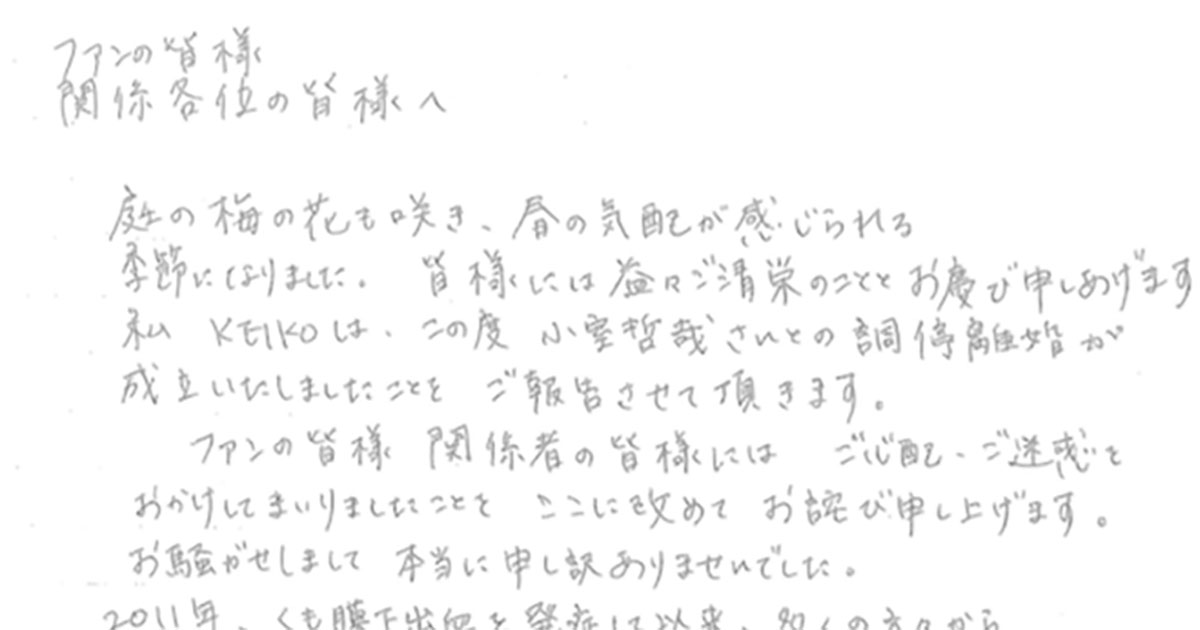 ファンの皆様
関係各位の皆様へ
庭の梅の花も咲き、春の気配が感じられる
季節になりました。 皆様には益々ご清栄のこととお慶び申しあげます
私 KEIKOは、この度 小室哲哉さんとの調停離婚が
成立いたしましたことを ご報告させて頂きます。
ファンの皆様 関係者の皆様には ご心配、ご迷惑を
おかけしてまいりましたことを ここに改めて お詫び申し上げます。
お騒がせしまして 本当に申し訳ありませんでした。
2011年、くも膜下出血を発症して以来、多くの方々から